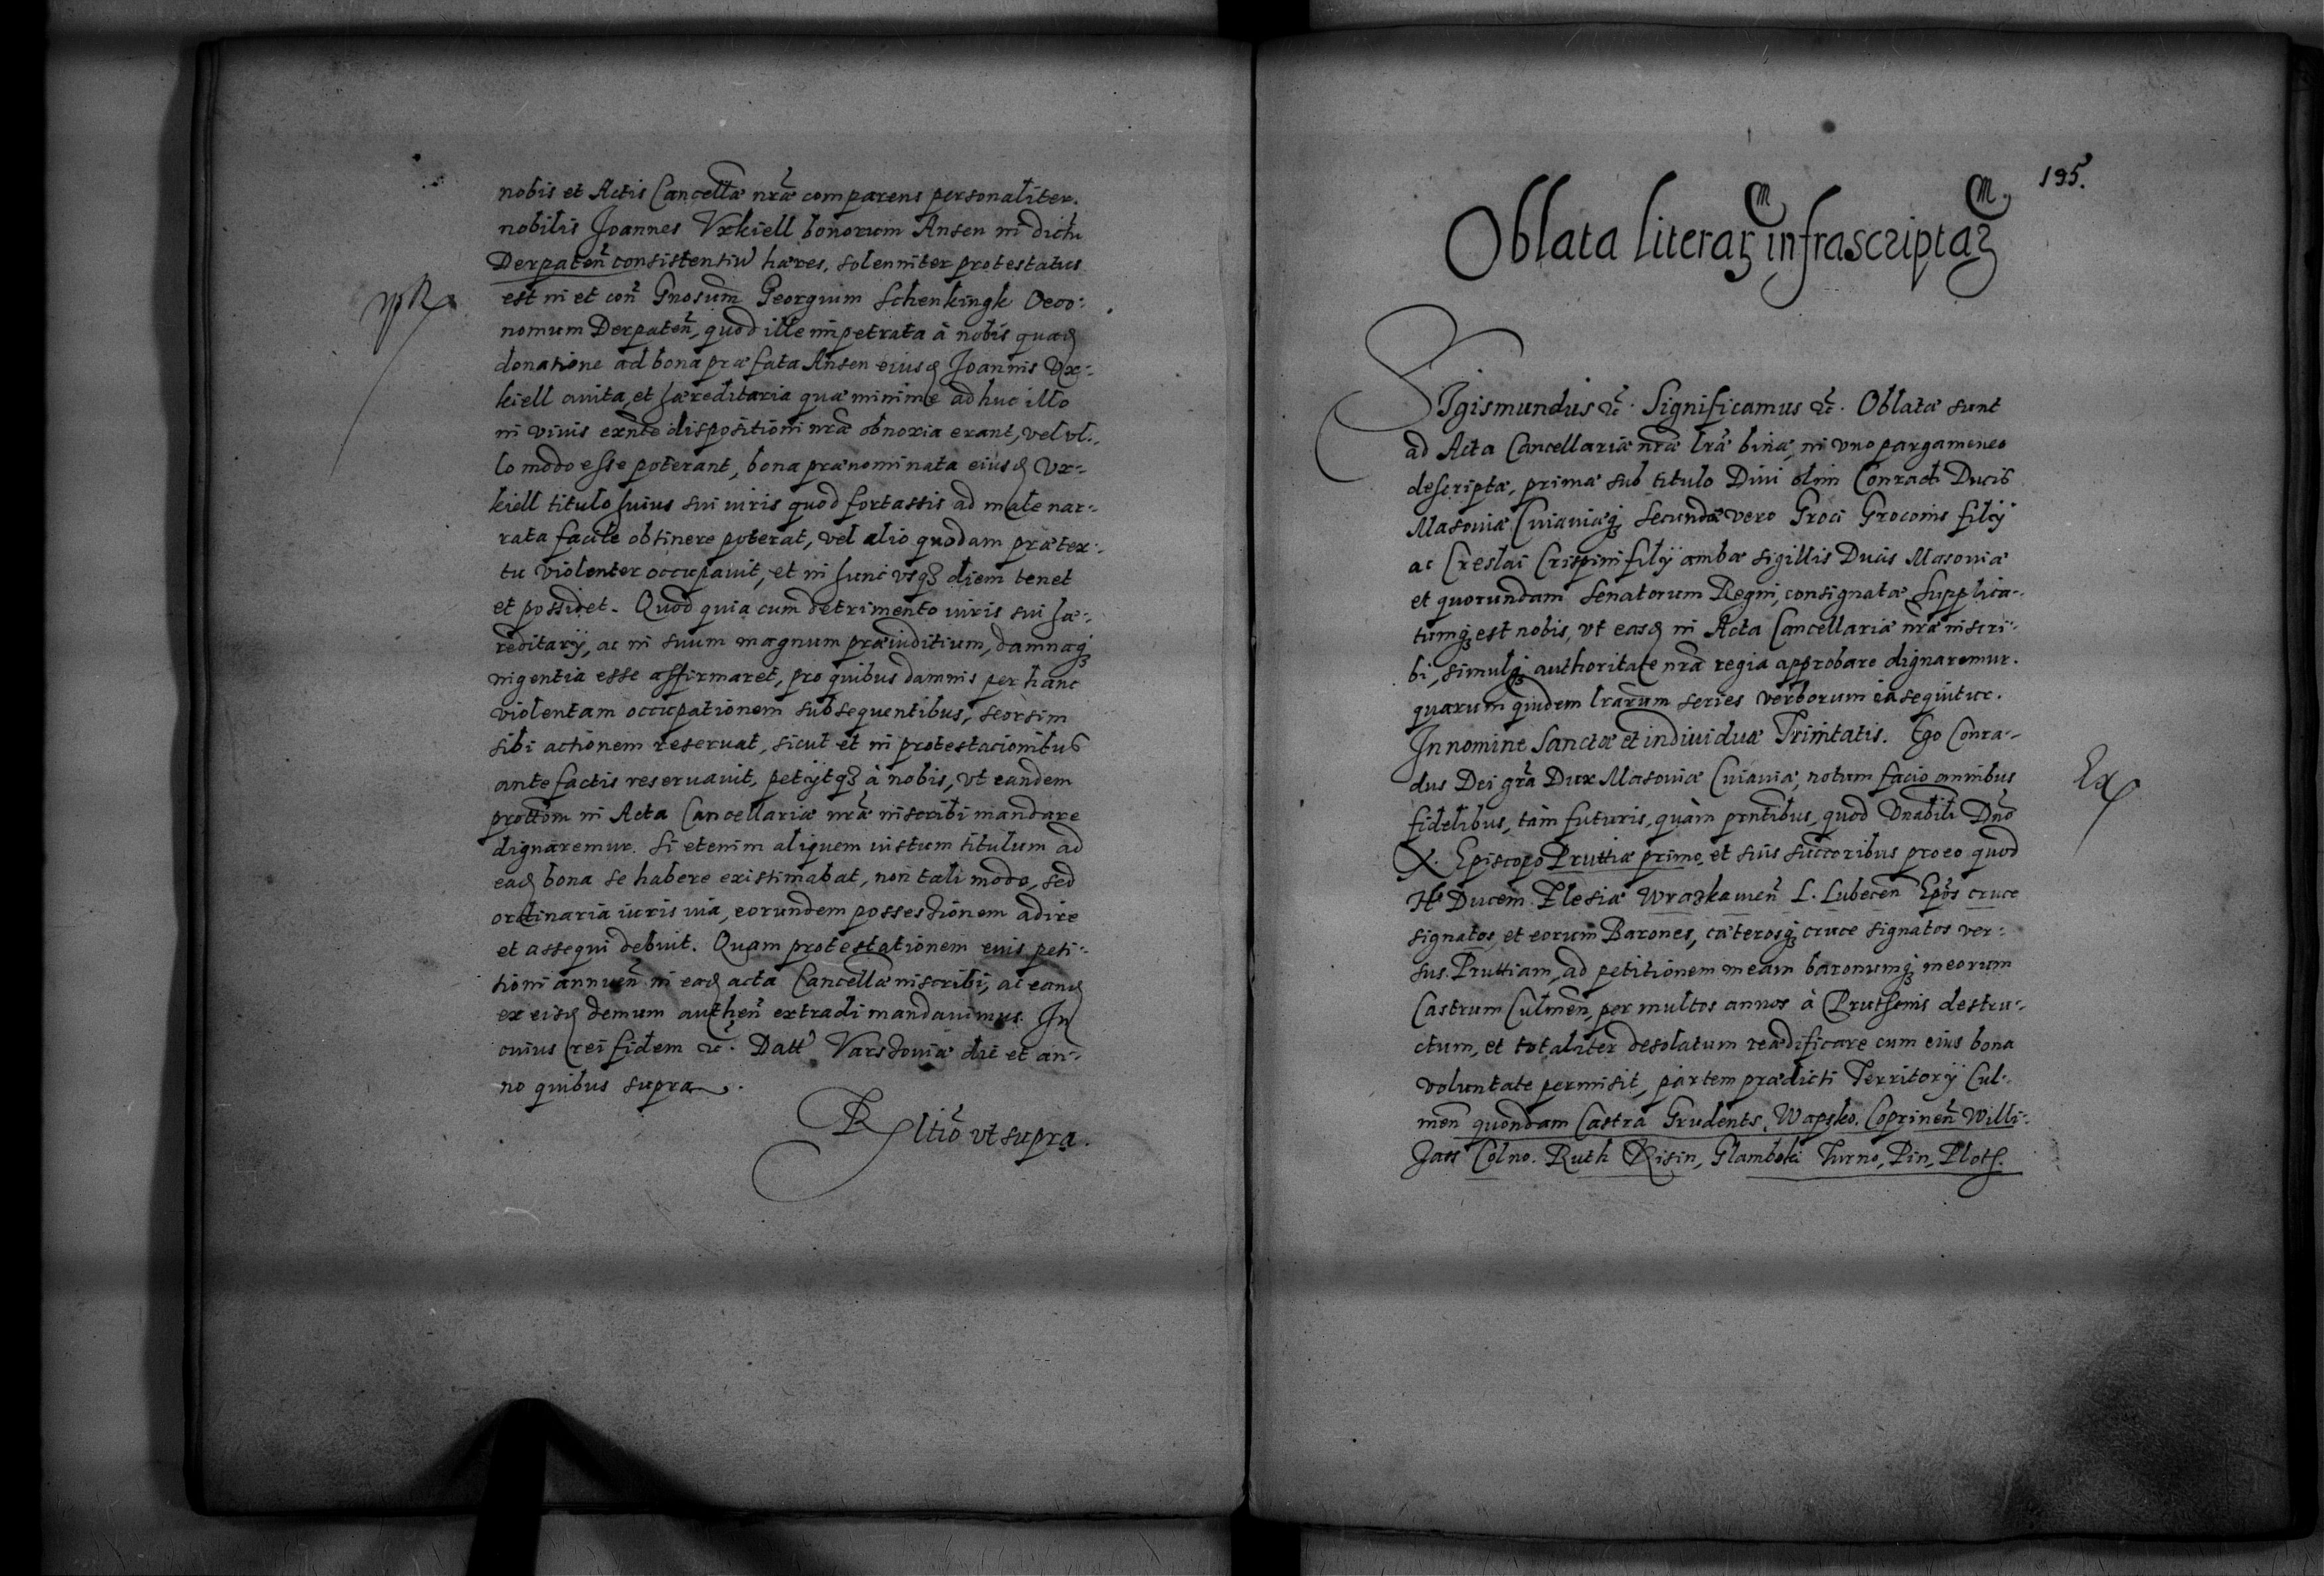 nobis et Actis Cancellæ nræ comparens personaliter.
nobilis Joannes Vxkiell bonorum Ansen in dictu
Derpateñ consistentiũ hæres, solenniter protestatus
est in et coñ Gnosum Georgium Schenkingk Oeco:
nomum Derpateñ, quod ille impetrata à nobis quad
donatione ad bona præfata Ansen eiusd Joannis Vx:
kiell avita, et hæreditaria quæ minime adhuc illo
in vivis exñte dispositioni nræ obnoxia erant, vel vl:
lo modo esse poterant, bona prænominata eiusd Vx:
kiell titulo huius sui iuris quod fortassis ad male nar:
rata facile obtinere poterat, vel alio quodam prætex:
tu violenter occupavit, et in hunc vsq3 diem tenet
et possidet. Quod quia cum detrimento iuris sui hæ:
reditarÿ, ac in suum magnum præiuditium, damnaq3
ingentia esse affirmaret, pro quibus damnis per hanc
violentam occupationem subsequentibus, seorsim
sibi actionem reseruat, sicut et in protestacionibus
ante factis reseruavit, petÿtq3 à nobis, vt eandem
prottõm in Acta Cancellariæ nræ inscribi mandare
dignaremur. Si etenim aliquem iustum titulum ad
ead bona se habere existimabat, non tali modo, sed
ordinaria iuris via, eorundem possessionem adire
et assequi debuit. Quam protestationem euis peti:
tioni annueñ in ead acta Cancellæ inscribi, ac eand
ex eisd demum autheñ extradi mandavimus. In
cuius rei fidem &c. Datt Varsaviæ die et an:
no quibus supra.
Rltiõ vt supra.
195.
Oblata literarm infrascriptarm
SIgismundus &c. Significamus &c. Oblatæ sunt
ad Acta Cancellariæ nræ lræ binæ, in vno pargameneo
descriptæ, primæ sub titulo Divi olim Conradi Ducis
Masoviæ Cuiaviæq3 secundæ vero Groci Groconis filÿ
ac Creslai Crispini filÿ ambæ sigillis Ducis Masoviæ
et quorundam Senatorum Regni, consignatæ Supplica:
tumq3 est nobis, vt easd in Acta Cancellariæ nræ inscri:
bi, simulq3 authoritate nrã regia approbare dignaremur.
quarum quidem lrarum series verborum ea sequitur.
In nomine Sanctæ et individuæ Trinitatis. Ego Conra:
dus Dei grã Dux Masoviæ Cuiaviæ, notum facio omnibus
fidelibus, tàm futuris, quàm prñtibus, quod Vnabili Dño
X. Episcopo Pruttiæ primo, et suis succoribus pro eo quod
H. Ducem Slesiæ Wrazlaueñ L. Lubeceñ Epõs cruce
signatos, et eorum Barones, cæterosq3 cruce signatos ver:
sus Pruttiam, ad petitionem meam baronumq3 meorum
Castrum Culmeñ, per multos annos à Pruthenis destru:
ctum, et totaliter desolatum reædificare cum eius bona
voluntate permisit, partem prædicti Territorÿ Cul:
meñ quondam Castra Grudents, Wapsko, Coprineñ Willi:
Jass Colno. Ruth Risin, Glamboki Turno, Pin, Ploth.
Ex